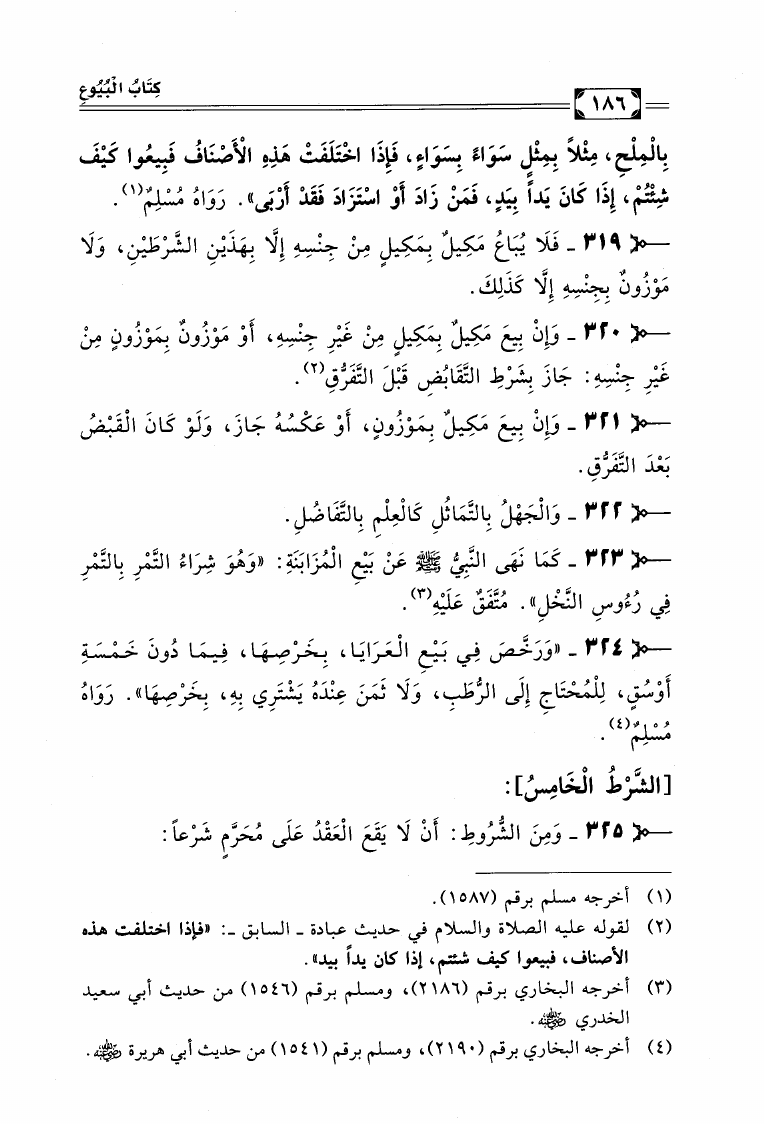 كِتَابُ الْبُيُوعِ
١٨٦
بِالْمِلْحِ، مِثْلاً بِمِثْلٍ سَوَاءً بِسَوَاءٍ، فَإِذَا اخْتَلَفَتْ هَذِهِ الْأَصْنَافُ فَبِيعُوا كَيْفَ
شِئْتُمْ، إِذَا كَانَ يَداً بِيَدٍ، فَمَنْ زَادَ أَوْ اسْتَزَادَ فَقَدْ أَرْبَى». رَوَاهُ مُسْلِمٌ(١).
٣١٩ ـ فَلَا يُبَاعُ مَكِيلٌ بِمَكِيلٍ مِنْ جِنْسِهِ إِلَّا بِهَذَيْنِ الشَّرْطَيْنِ، وَلَا
مَوْزُونٌ بِجِنْسِهِ إِلَّا كَذَلِكَ.
٣٢٠ ـ وَإِنْ بِيعَ مَكِيلٌ بِمَكِيلٍ مِنْ غَيْرِ جِنْسِهِ، أَوْ مَوْزُونٌ بِمَوْزُونٍ مِنْ
غَيْرِ جِنْسِهِ: جَازَ بِشَرْطِ التَّقَابُضِ قَبْلَ التَّفَرُّقِ(٢).
٣٢١ ـ وَإِنْ بِيعَ مَكِيلٌ بِمَوْزُونٍ، أَوْ عَكْسُهُ جَازَ، وَلَوْ كَانَ الْقَبْضُ
بَعْدَ التَّفَرُّقِ.
٣٢٢ ـ وَالْجَهْلُ بِالتَّمَاثُلِ كَالْعِلْمِ بِالتَّفَاضُلِ.
٣٢٣ ـ كَمَا نَهَى النَّبِيُّ ﷺ عَنْ بَيْعِ الْمُزَابَنَةِ: «وَهُوَ شِرَاءُ التَّمْرِ بِالتَّمْرِ
فِي رُءُوسِ النَّخْلِ». مُتَّفَقٌ عَلَيْهِ(٣).
٣٢٤ ـ «وَرَخَّصَ فِي بَيْعِ الْعَرَايَا، بِخَرْصِهَا، فِيمَا دُونَ خَمْسَةِ
أَوْسُقٍ، لِلْمُحْتَاجِ إِلَى الرُّطَبِ، وَلَا ثَمَنَ عِنْدَهُ يَشْتَرِي بِهِ، بِخَرْصِهَا». رَوَاهُ
مُسْلِمٌ(٤).
[الشَّرْطُ الْخَامِسُ]:
٣٢٥ ـ وَمِنَ الشُّرُوطِ: أَنْ لَا يَقَعَ الْعَقْدُ عَلَى مُحَرَّمٍ شَرْعاً:
(١) أخرجه مسلم برقم (١٥٨٧).
(٢) لقوله عليه الصلاة والسلام في حديث عبادة ـ السابق ـ: «فإذا اختلفت هذه
الأصناف، فبيعوا كيف شئتم، إذا كان يداً بيد».
(٣) أخرجه البخاري برقم (٢١٨٦)، ومسلم برقم (١٥٤٦) من حديث أبي سعيد
الخدري رضي الله عنه.
(٤) أخرجه البخاري برقم (٢١٩٠)، ومسلم برقم (١٥٤١) من حديث أبي هريرة رضي الله عنه.